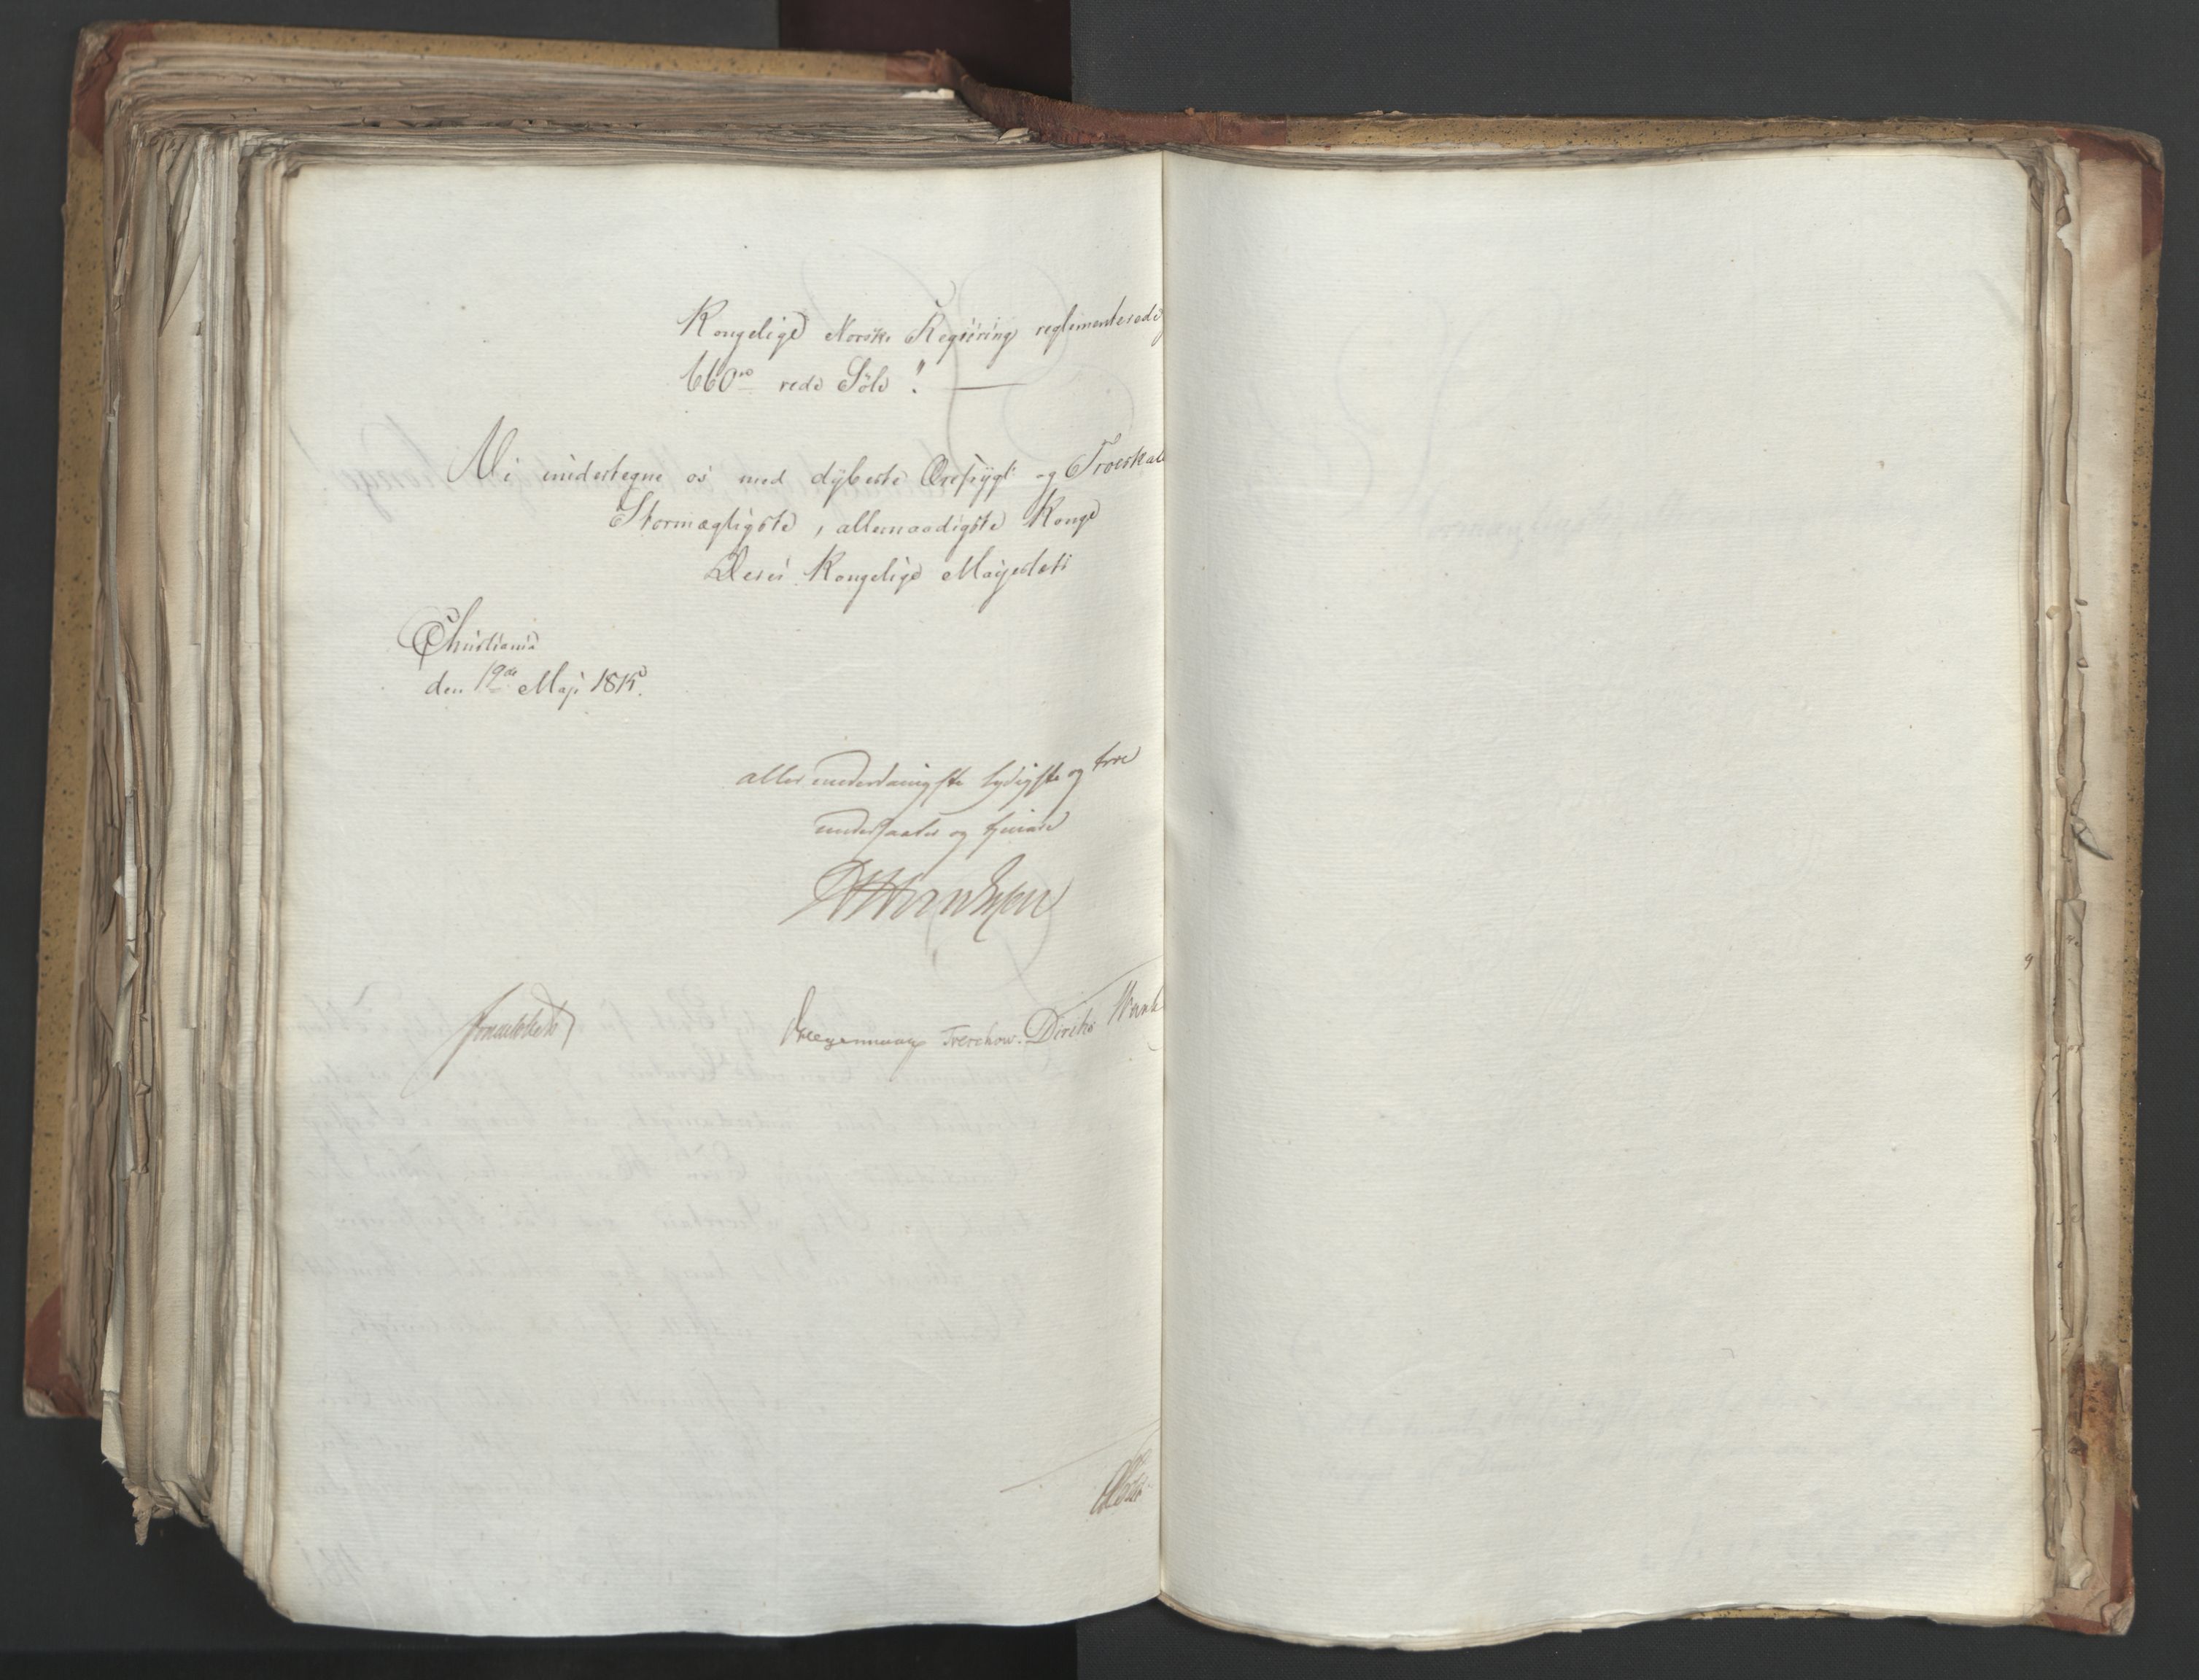 Kongelige Norske Regiering reglementerede
660 rede Sölv".
Vi undertegne os med dybeste Ærefrygt og Troeskab
Stormægtigste, allernaadigste Konge
Deres Kongelige Majestæts
Christiania
den 19de Maji 1815.
allerunderdanigste lydigste og troe
undersaatter og tjenere
Hegermann Treschow. Diriks